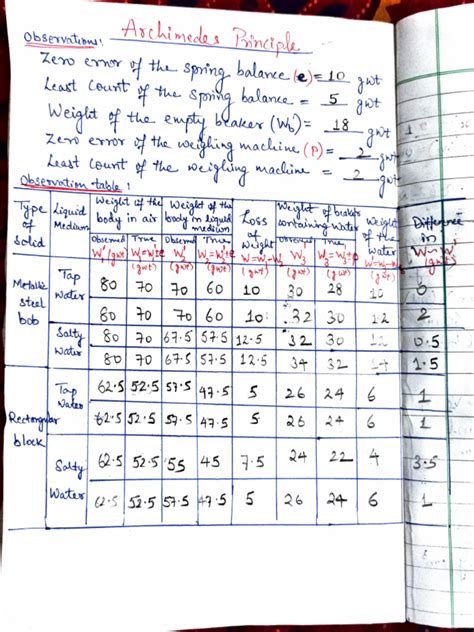 Observations: Archimedes Principle
Zero error of the spring balance (e) = 10 gwt
Least Count of the spring balance = 5 gwt
Weight of the empty beaker (Wb) = 18 gwt
Zero error of the weighing machine (P) = 2 gwt
Least Count of the weighing machine = 2 gwt
Observation table:
Type of solid | Liquid Medium | Weight of the body in air | Weight of the body in liquid medium | Loss of Weight | Weight of beaker containing water | Weight of the Water | Difference in
Observed | True | Observed | True | Observed | True
Metallic steel bob | Tap Water | 80 | 70 | 70 | 60 | 10 | 30 | 28 | 10 | 0
80 | 70 | 70 | 60 | 10 | 32 | 30 | 12 | 2
Salty Water | 80 | 70 | 67.5 | 57.5 | 12.5 | 32 | 30 | 12 | 0.5
80 | 70 | 67.5 | 57.5 | 12.5 | 34 | 32 | 14 | 1.5
Rectangular block | Tap Water | 62.5 | 52.5 | 57.5 | 47.5 | 5 | 26 | 24 | 6 | 1
62.5 | 52.5 | 57.5 | 47.5 | 5 | 26 | 24 | 6 | 1
Salty Water | 62.5 | 52.5 | 55 | 45 | 7.5 | 24 | 22 | 4 | 3.5
62.5 | 52.5 | 57.5 | 47.5 | 5 | 26 | 24 | 6 | 1